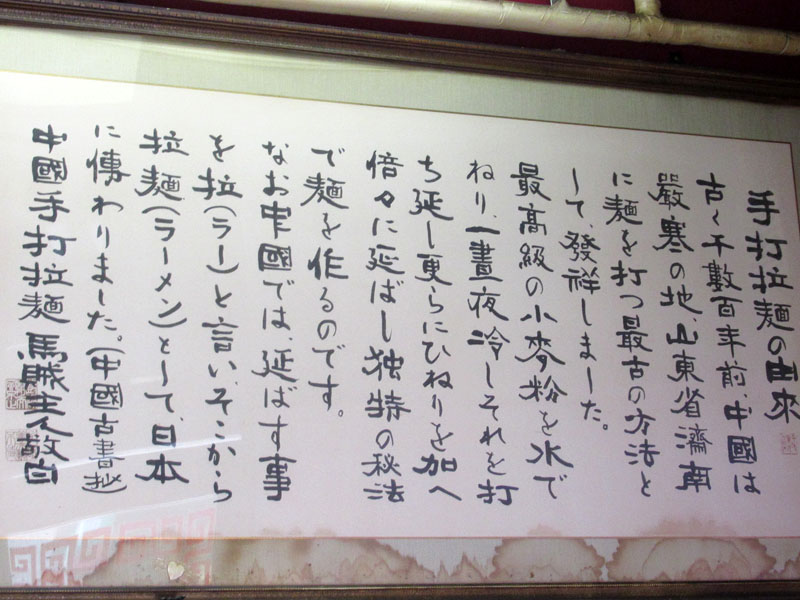 手打拉麵の由來
古く千數百年前、中國は
嚴寒の地、山東省濟南
に麵を打つ最古の方法と
して、發祥しました。
最高級の小麥粉を水で
ねり、一晝夜冷しそれを打
ち延し更らにひねりを加へ
倍々に延ばし独特の秘法
で麵を作るのです。
なお中國では、延ばす事
を拉(ラー)と言い、そこから
拉麵(ラーメン)として、日本
に傳わりました。(中國古書抄)
中國手打拉麵 馬賊主人敬白